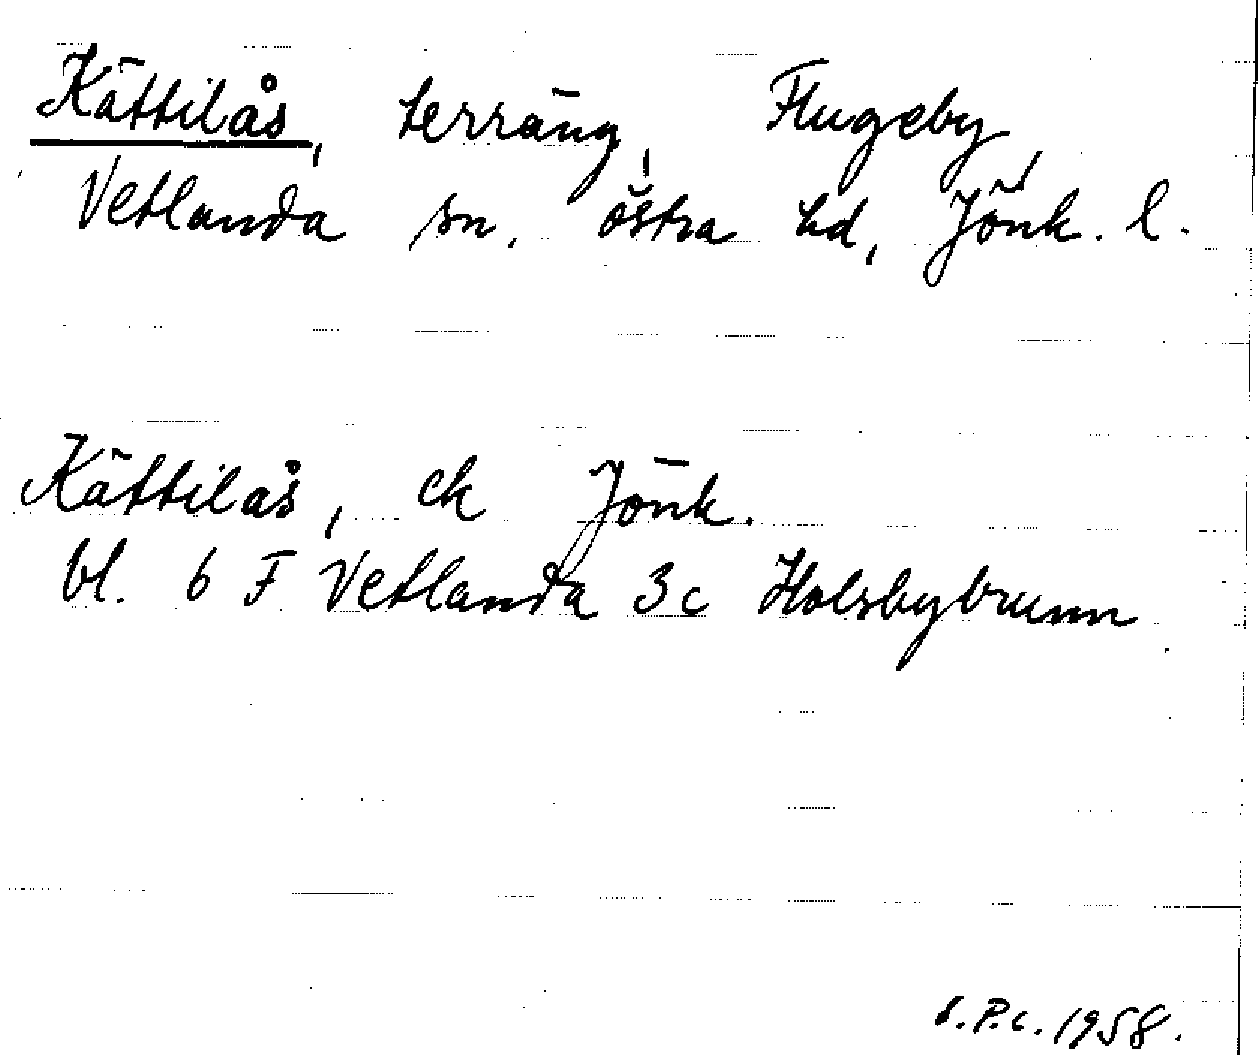 Kättilås, terräng, Flugeby,
Vetlanda sn, östra hd, Jönk. l.
Kättilås, ek Jönk.
bl. 6 F Vetlanda 3c Holsbybrunn
S.P.c. 1958.